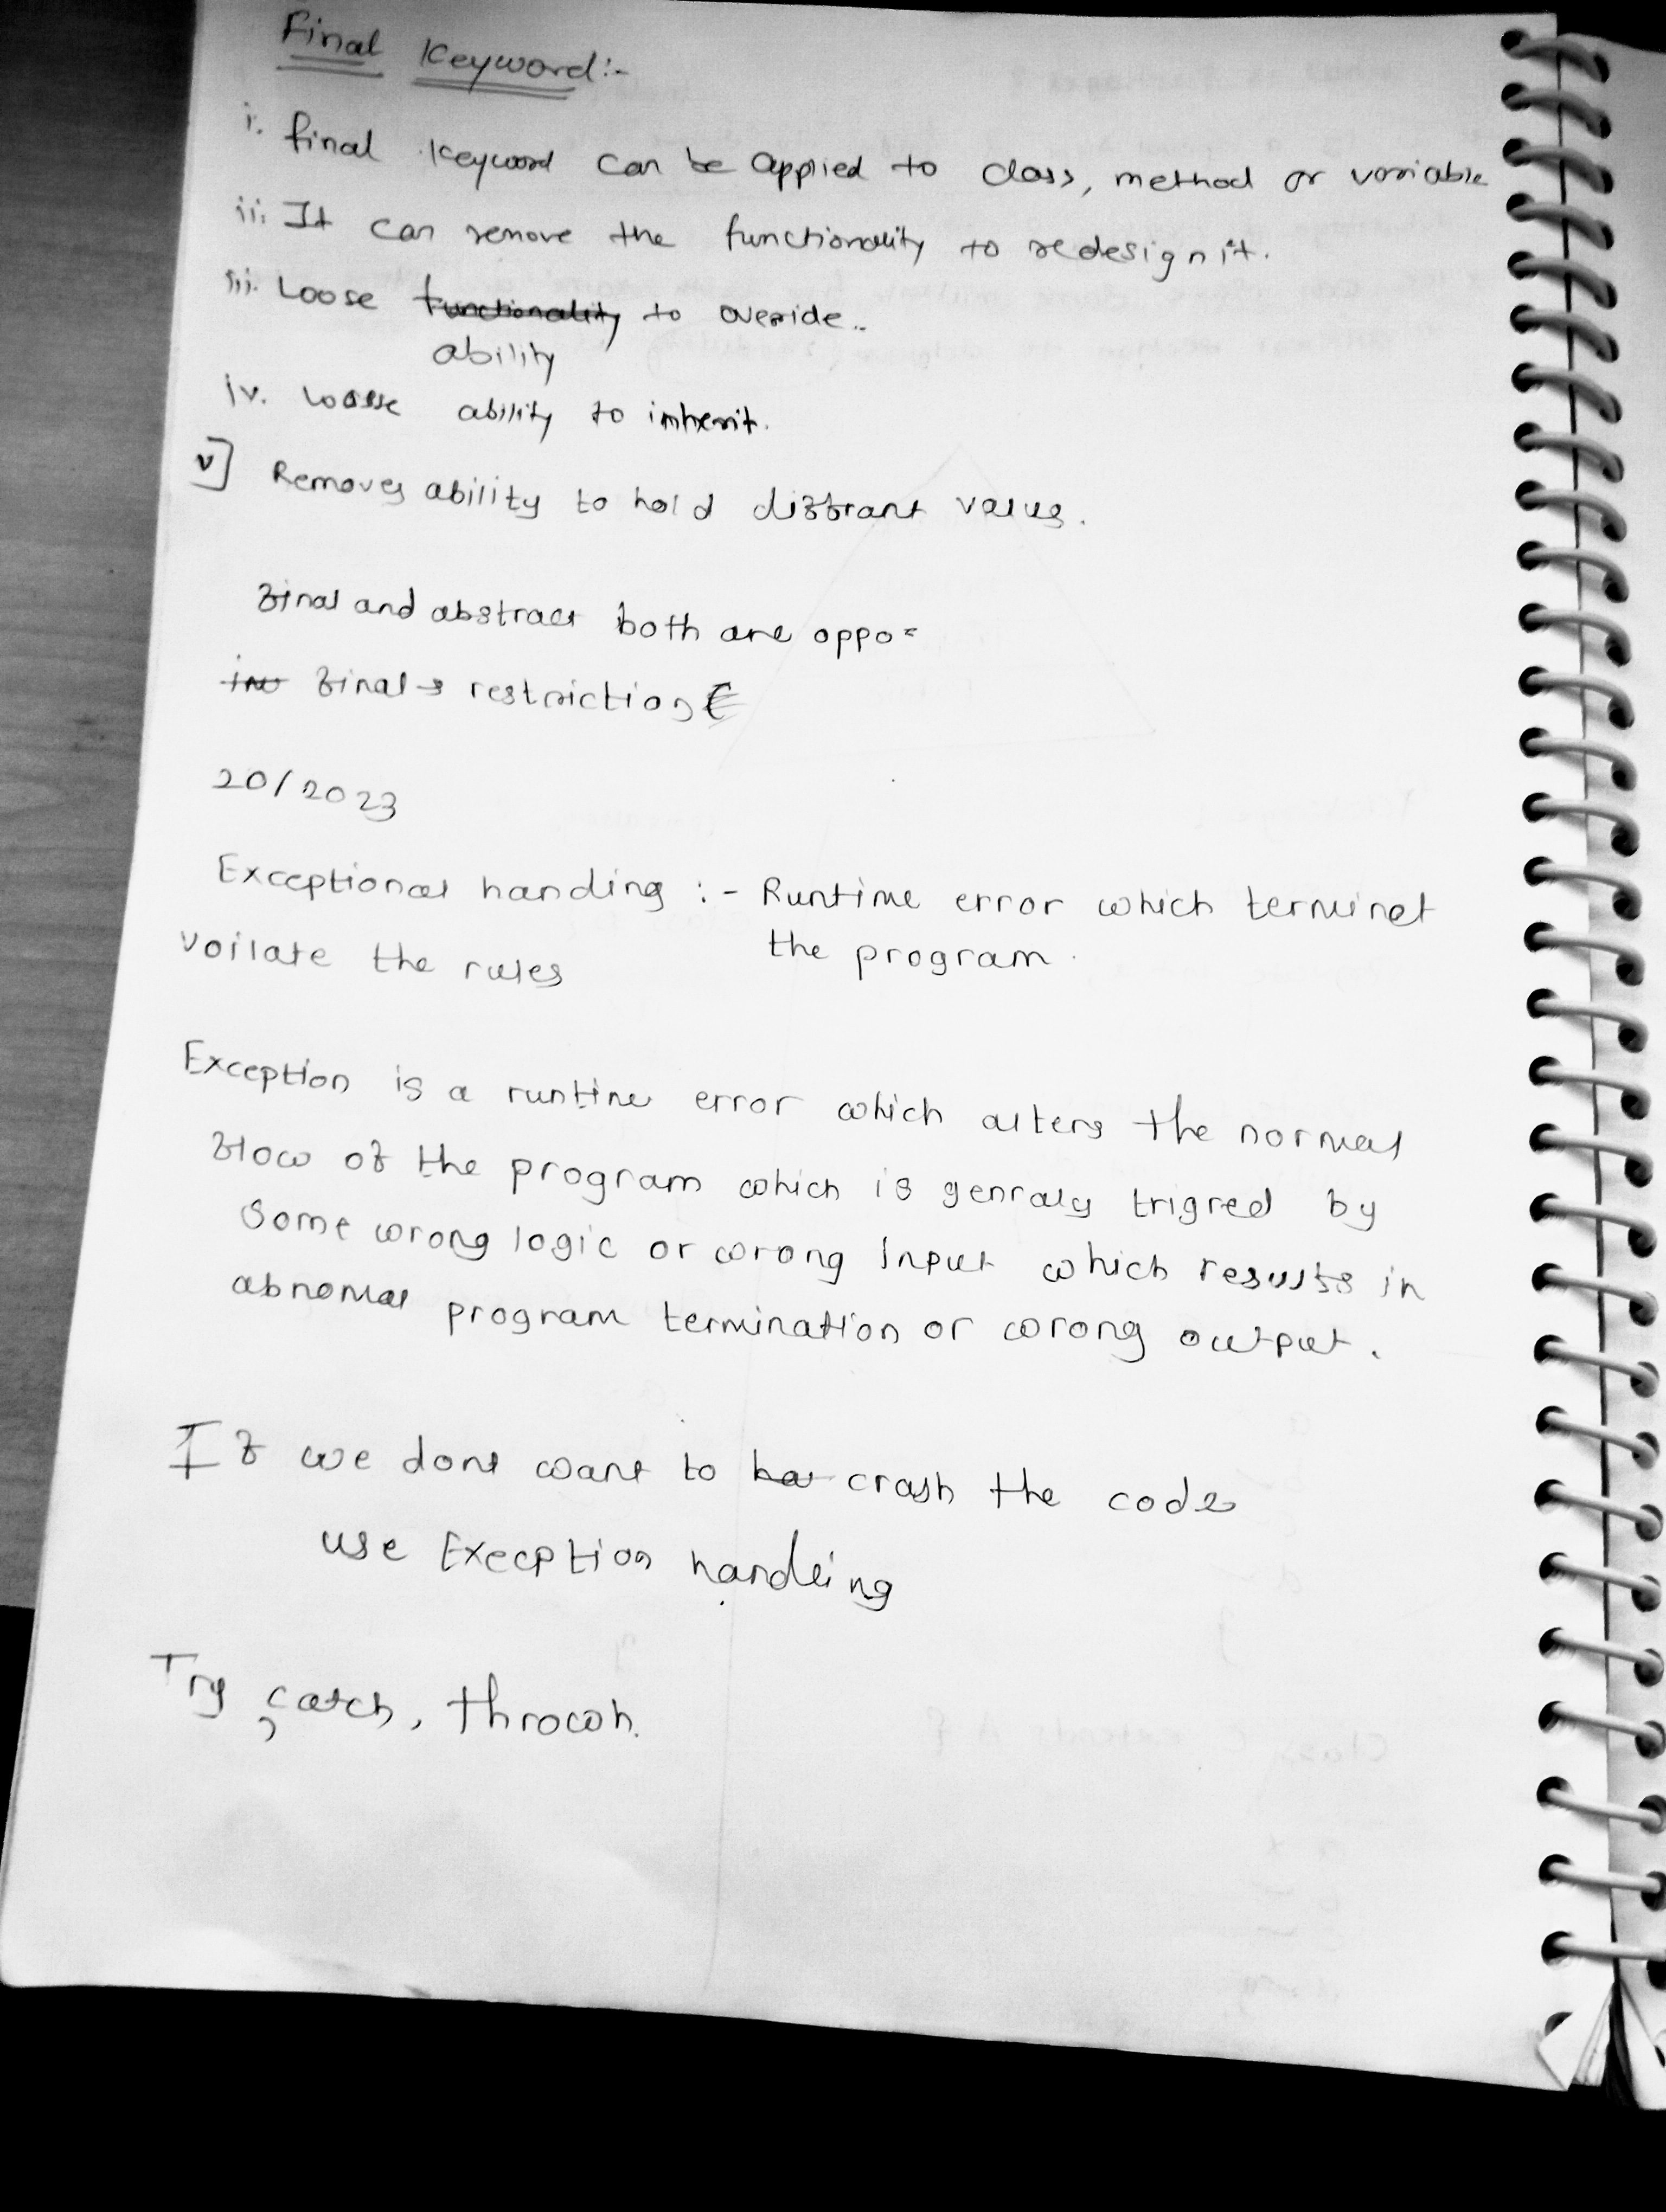 Final Keyword:-
i. final keyword can be applied to class, method or variable
ii. It can remove the functionality to redesign it.
iii. Loose functionality to overide..
ability
iv. Loose ability to inherit.
v] Removes ability to hold diffrant value.
final and abstract both are oppo=
final → restriction
20/2023
Exceptional handing :- Runtime error which terminet
voilate the rules the program.
Exception is a runtime error which alters the normal
flow of the program which is genraly trigred by
Some wrong logic or wrong Input which results in
abnomal program termination or wrong output.
If we dont want to crash the code
use Exeception handling
Try, catch, throwh.